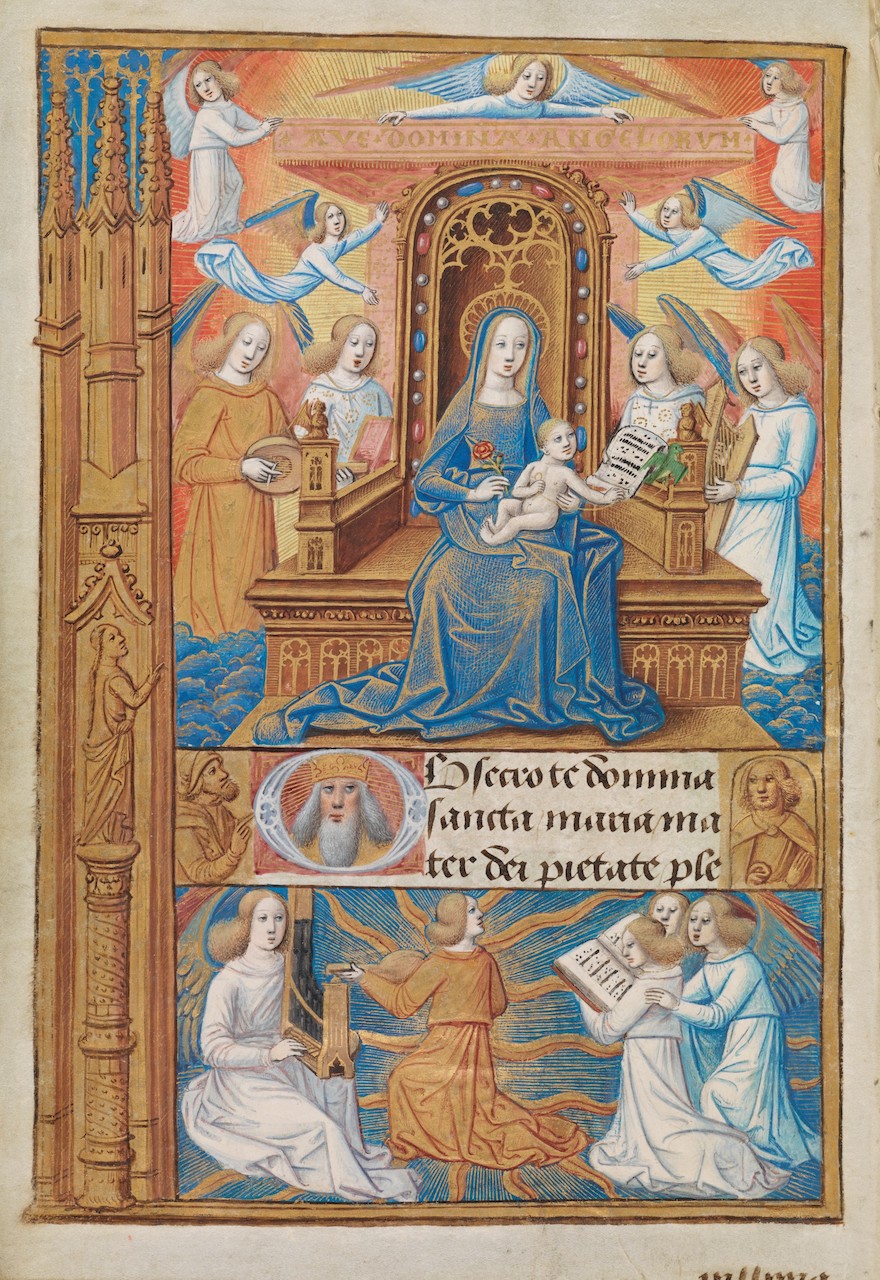 AVE·DOMINA·ANGELORVM
Obsecro te domina
sancta maria ma
ter dei pietate ple